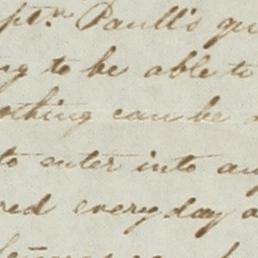 pt.n Paull's qu
ng to be able to
othing can be
to enter into an
red every day a